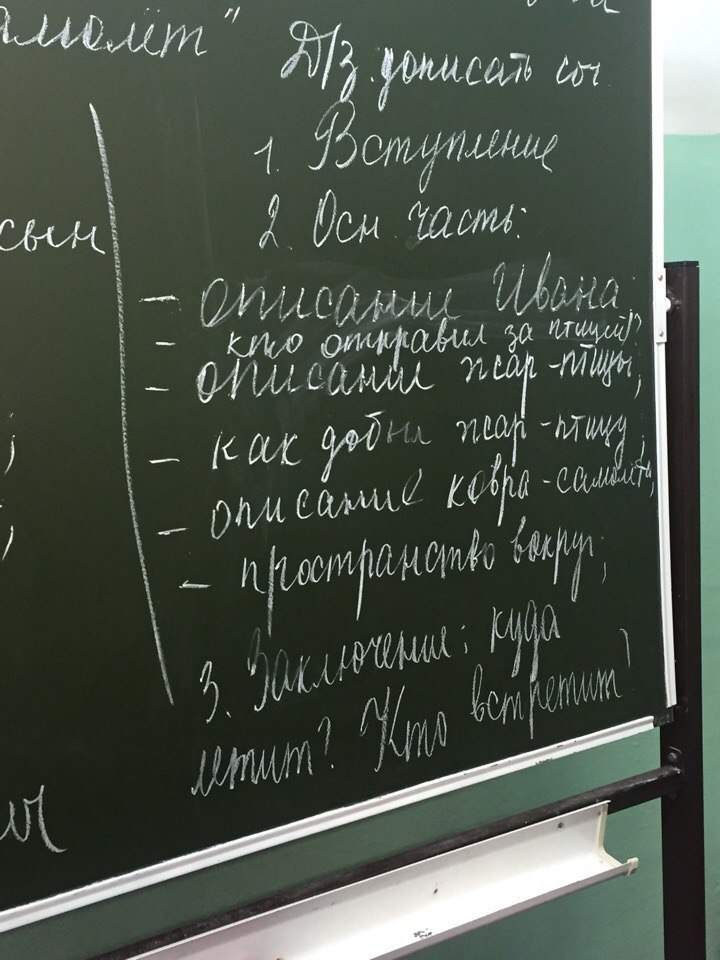 амолёт"
Д/з. дописать соч
1. Вступление
2. Осн. часть:
сын
– описание Ивана;
– кто отправил за птицей?
– описание жар-птицы;
– как добыл жар-птицу;
– описание ковра-самолёта;
– пространство вокруг;
3. Заключение: куда
летит? Кто встретит